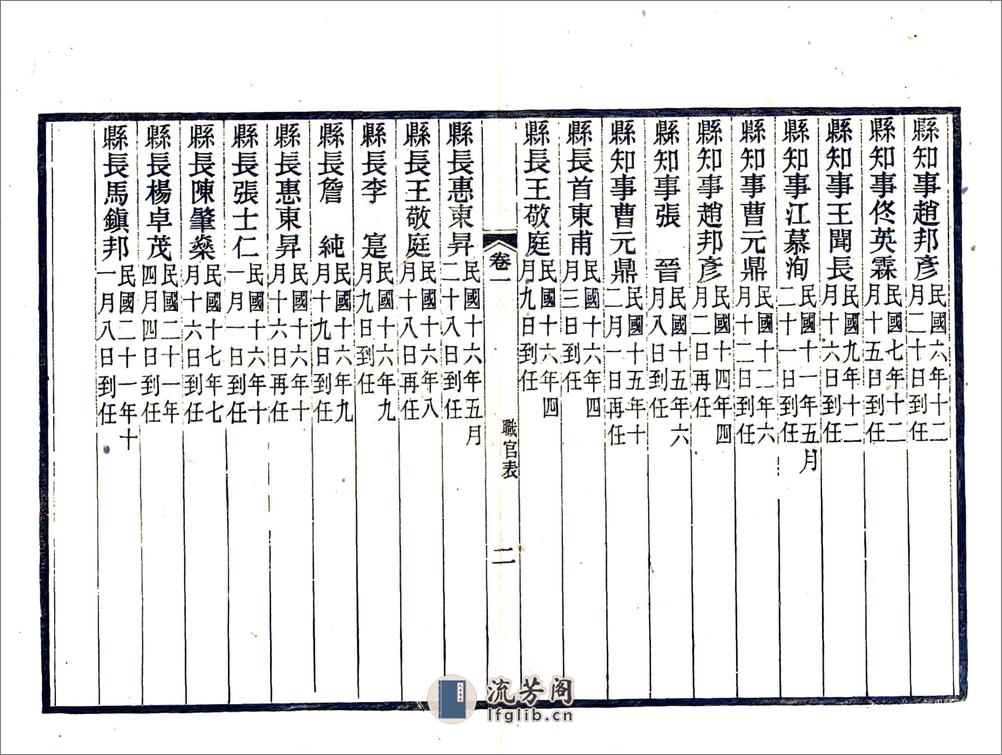 縣知事趙邦彥民國六年十二月二十日到任
縣知事佟英霖民國七年十二月十五日到任
縣知事王聞長民國九年十二月十六日到任
縣知事江慕洵民國十一年五月二十一日到任
縣知事曹元鼎民國十二年六月十二日到任
縣知事趙邦彥民國十四年四月二日再任
縣知事張　晉民國十五年六月八日到任
縣知事曹元鼎民國十五年十二月一日再任
縣長首東甫民國十六年四月三日到任
縣長王敬庭民國十六年四月九日到任
卷一　職官表　二
縣長惠東昇民國十六年五月二十八日到任
縣長王敬庭民國十六年八月十八日再任
縣長李　寔民國十六年九月九日到任
縣長詹　純民國十六年九月十九日到任
縣長惠東昇民國十六年十月十六日再任
縣長張士仁民國十六年十一月一日到任
縣長陳肇燊民國十七年七月十六日到任
縣長楊卓茂民國二十一年四月四日到任
縣長馬鎮邦民國二十一年十一月八日到任
流芳阁
lfglib.cn